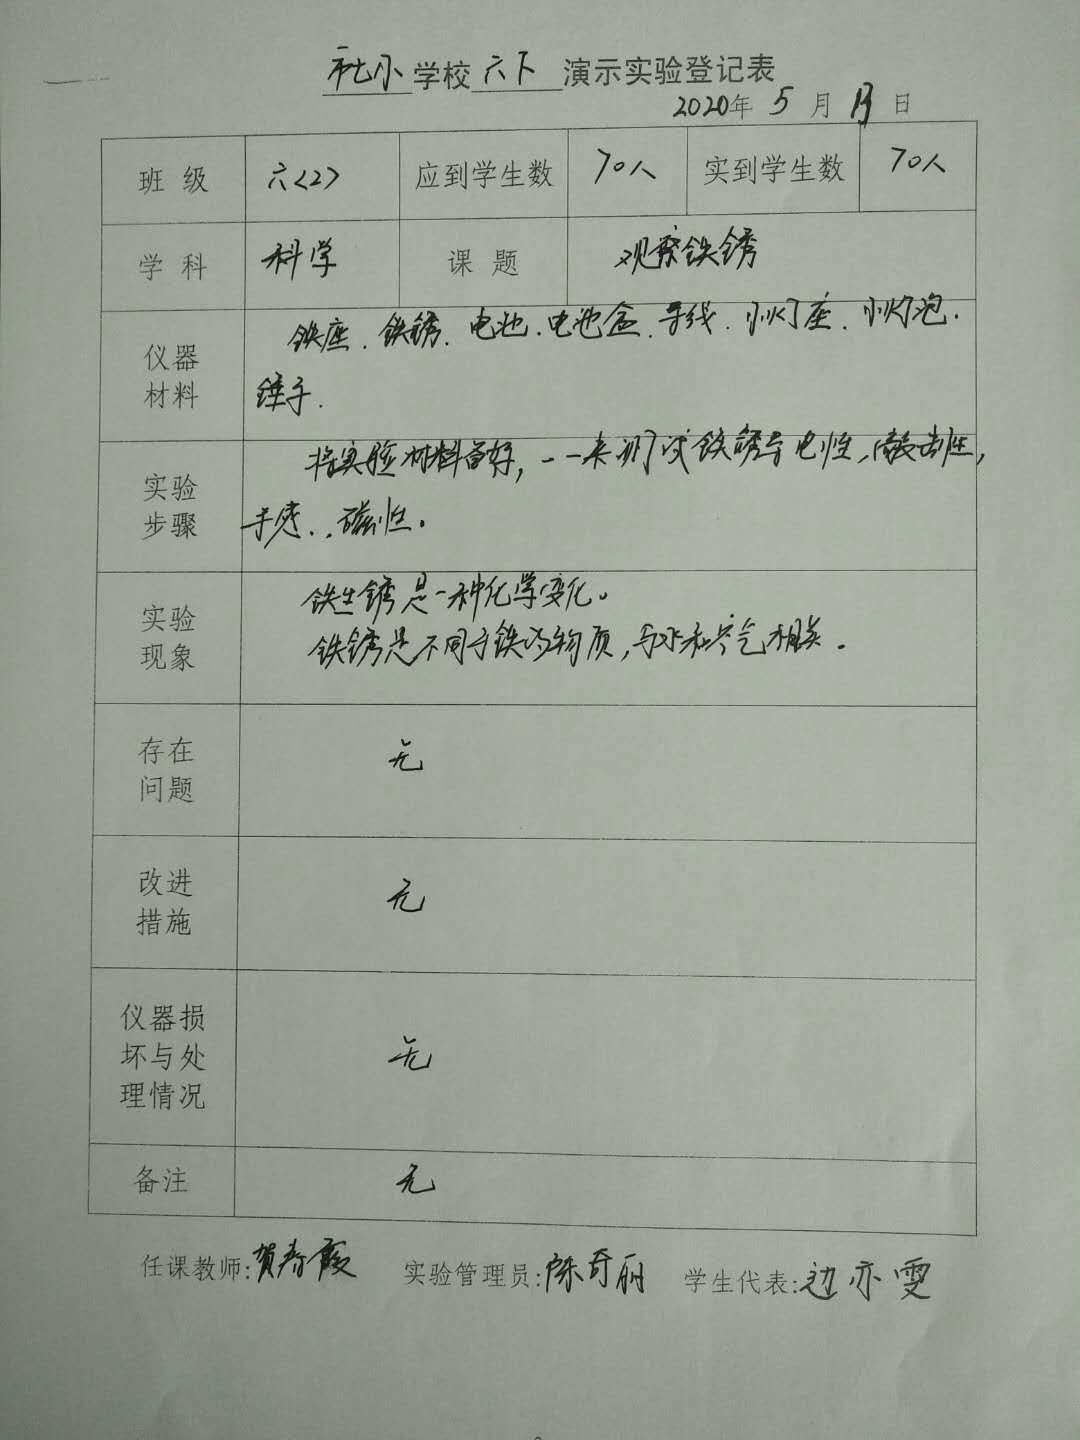 社小学校六下演示实验登记表
2020年 5 月 13 日
班 级 六<2> 应到学生数 70人 实到学生数 70人
学 科 科学 课 题 观察铁锈
仪器材料 铁座、铁锈、电池、电池盒、导线、小灯座、小灯泡、
锤子.
实验步骤 将实验材料备好,一一来测试铁锈导电性,敲击性,
手感、磁性。
实验现象 铁生锈是一种化学变化。
铁锈是不同于铁的物质,与水和空气相关.
存在问题 无
改进措施 无
仪器损坏与处理情况 无
备注 无
任课教师:贺春霞 实验管理员:陈奇丽 学生代表:边亦雯